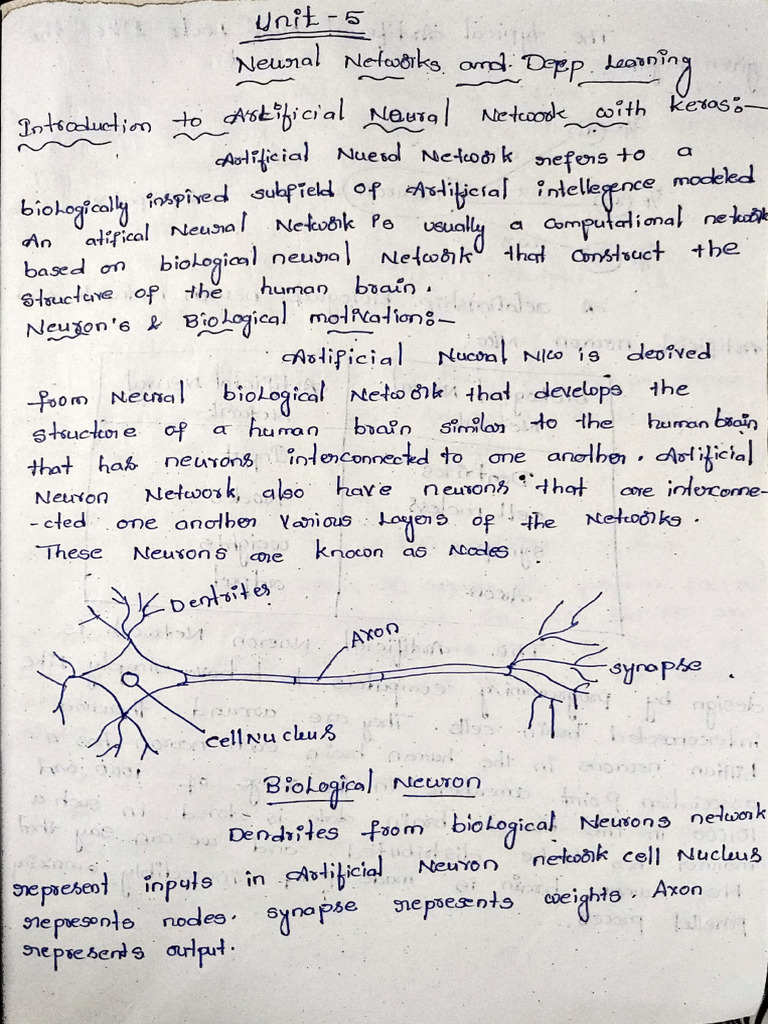 Unit - 5
Neural Networks and Depp Learning
Introduction to Artificial Neural Network with keras:-
Artificial Nuerd Network refers to a
biologically inspired subfield of Artificial intellegence modeled
An atifical Neural Network is usually a computational network
based on biological neural Network that construct the
structure of the human brain.
Neuron's & Biological motivation:-
Artificial Nucral N/w is derived
from Neural biological Network that develops the
structure of a human brain similar to the human brain
that has neurons interconnected to one another. Artificial
Neuron Network, also have neurons that are interconne-
-cted one another various layers of the Networks.
These Neurons are known as Nodes
Dentrites
Axon
synapse
cell Nucleus
Biological Neuron
Dendrites from biological Neurons network
represent inputs in Artificial Neuron network cell Nucleus
represents nodes. synapse represents weights. Axon
represents output.